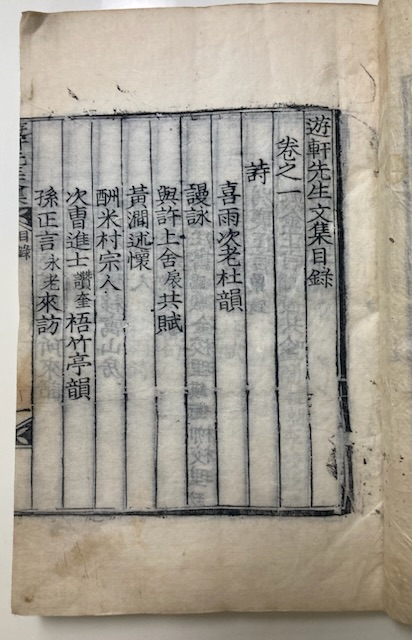 遊軒先生文集目錄
卷之一
詩
喜雨次老杜韻
謾詠
與許上舍共賦
黃澗述懷
酬米村宗人
次曺進士讚奎梧竹亭韻
孫正言永老來訪
目錄